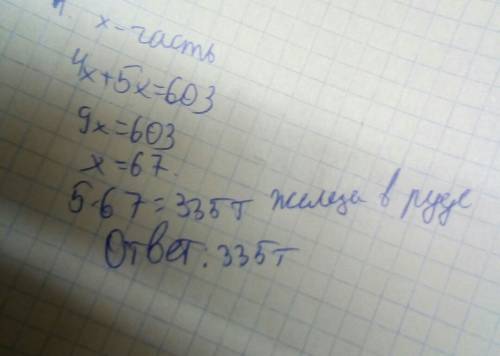 x-часть
4x+5x=603
9x=603
x=67.
5·67=335т железа в руде
Ответ: 335т